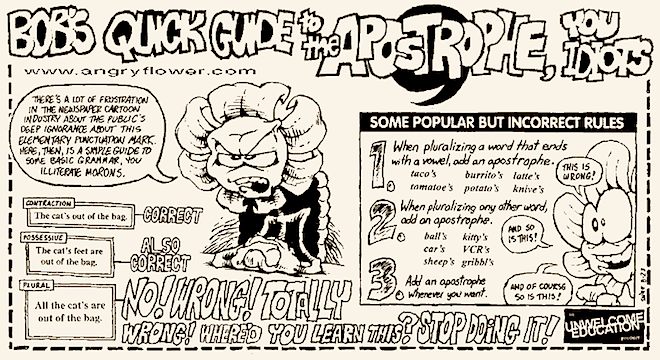 BOB'S QUICK GUIDE to the APOSTROPHE, YOU IDIOTS
www.angryflower.com
THERE'S A LOT OF FRUSTRATION
IN THE NEWSPAPER CARTOON
INDUSTRY ABOUT THE PUBLIC'S
DEEP IGNORANCE ABOUT THIS
ELEMENTARY PUNCTUATION MARK.
HERE, THEN, IS A SIMPLE GUIDE TO
SOME BASIC GRAMMAR, YOU
ILLITERATE MORONS.
CONTRACTION
The cat's out of the bag.
CORRECT
POSSESSIVE
The cat's feet are
out of the bag.
ALSO
CORRECT
PLURAL
All the cat's are
out of the bag.
NO! WRONG! TOTALLY
WRONG! WHERE'D YOU LEARN THIS? STOP DOING IT!
SOME POPULAR BUT INCORRECT RULES
1. When pluralizing a word that ends
with a vowel, add an apostrophe.
taco's burrito's latte's
tomatoe's potato's knive's
THIS IS
WRONG!
2. When pluralizing any other word,
add an apostrophe.
ball's kitty's
car's VCR's
sheep's gribbl's
AND SO
IS THIS!
3. Add an apostrophe
whenever you want.
AND OF COURSE
SO IS THIS!
UNWELCOME
EDUCATION